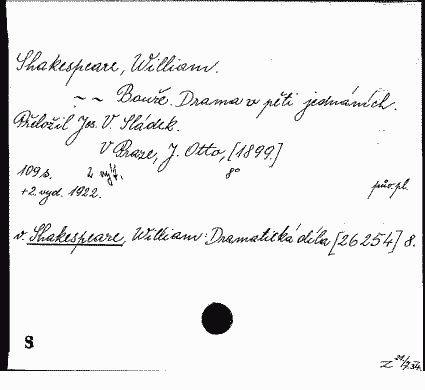 Shakespeare, William.
~ ~ Bouře. Drama v pěti jednáních.
Přeložil Jos. V. Sládek.
V Praze, J. Otto, [1899]
109 s. 2 výt. 8°
+2. vyd. 1922. pův. pl.
v. Shakespeare, William: Dramatická díla [26254] 8.
S